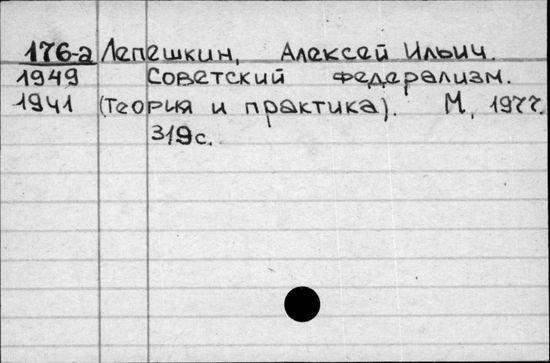 176-а Лепешкин, Алексей Ильич.
1949 Советский федерализм.
1941 (Теория и практика). М, 1977.
319с.